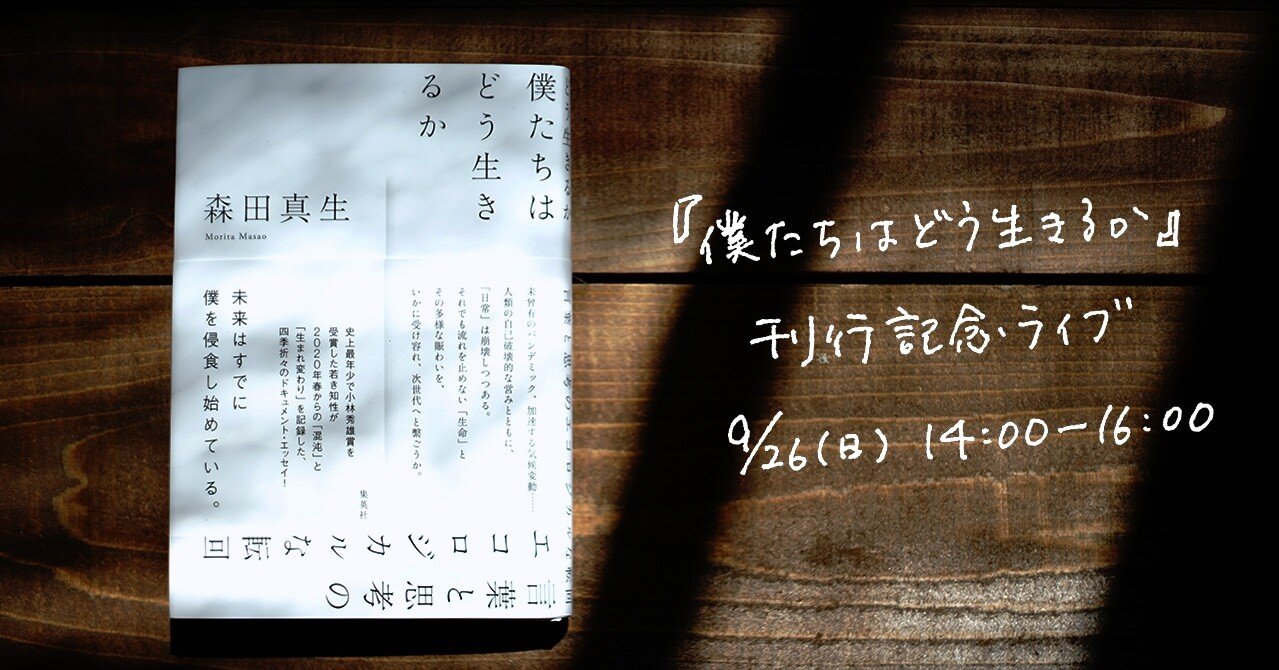 僕たちは
どう生き
るか
森田真生
Morita Masao
未曾有のパンデミック、加速する気候変動……
人類の自己破壊的な営みとともに、
「日常」は崩壊しつつある。
それでも流れを止めない「生命」と
その多様な賑わいを、
いかに受け容れ、次世代へと繋ごうか。
史上最年少で小林秀雄賞を
受賞した若き知性が
2020年春からの「混沌」と
「生まれ変わり」を記録した、
四季折々のドキュメント・エッセイ!
未来はすでに
僕を侵食し始めている。
集英社
言葉と思考の
エコロジカルな転回
『僕たちはどう生きるか』
刊行記念・ライブ
9/26(日) 14:00-16:00